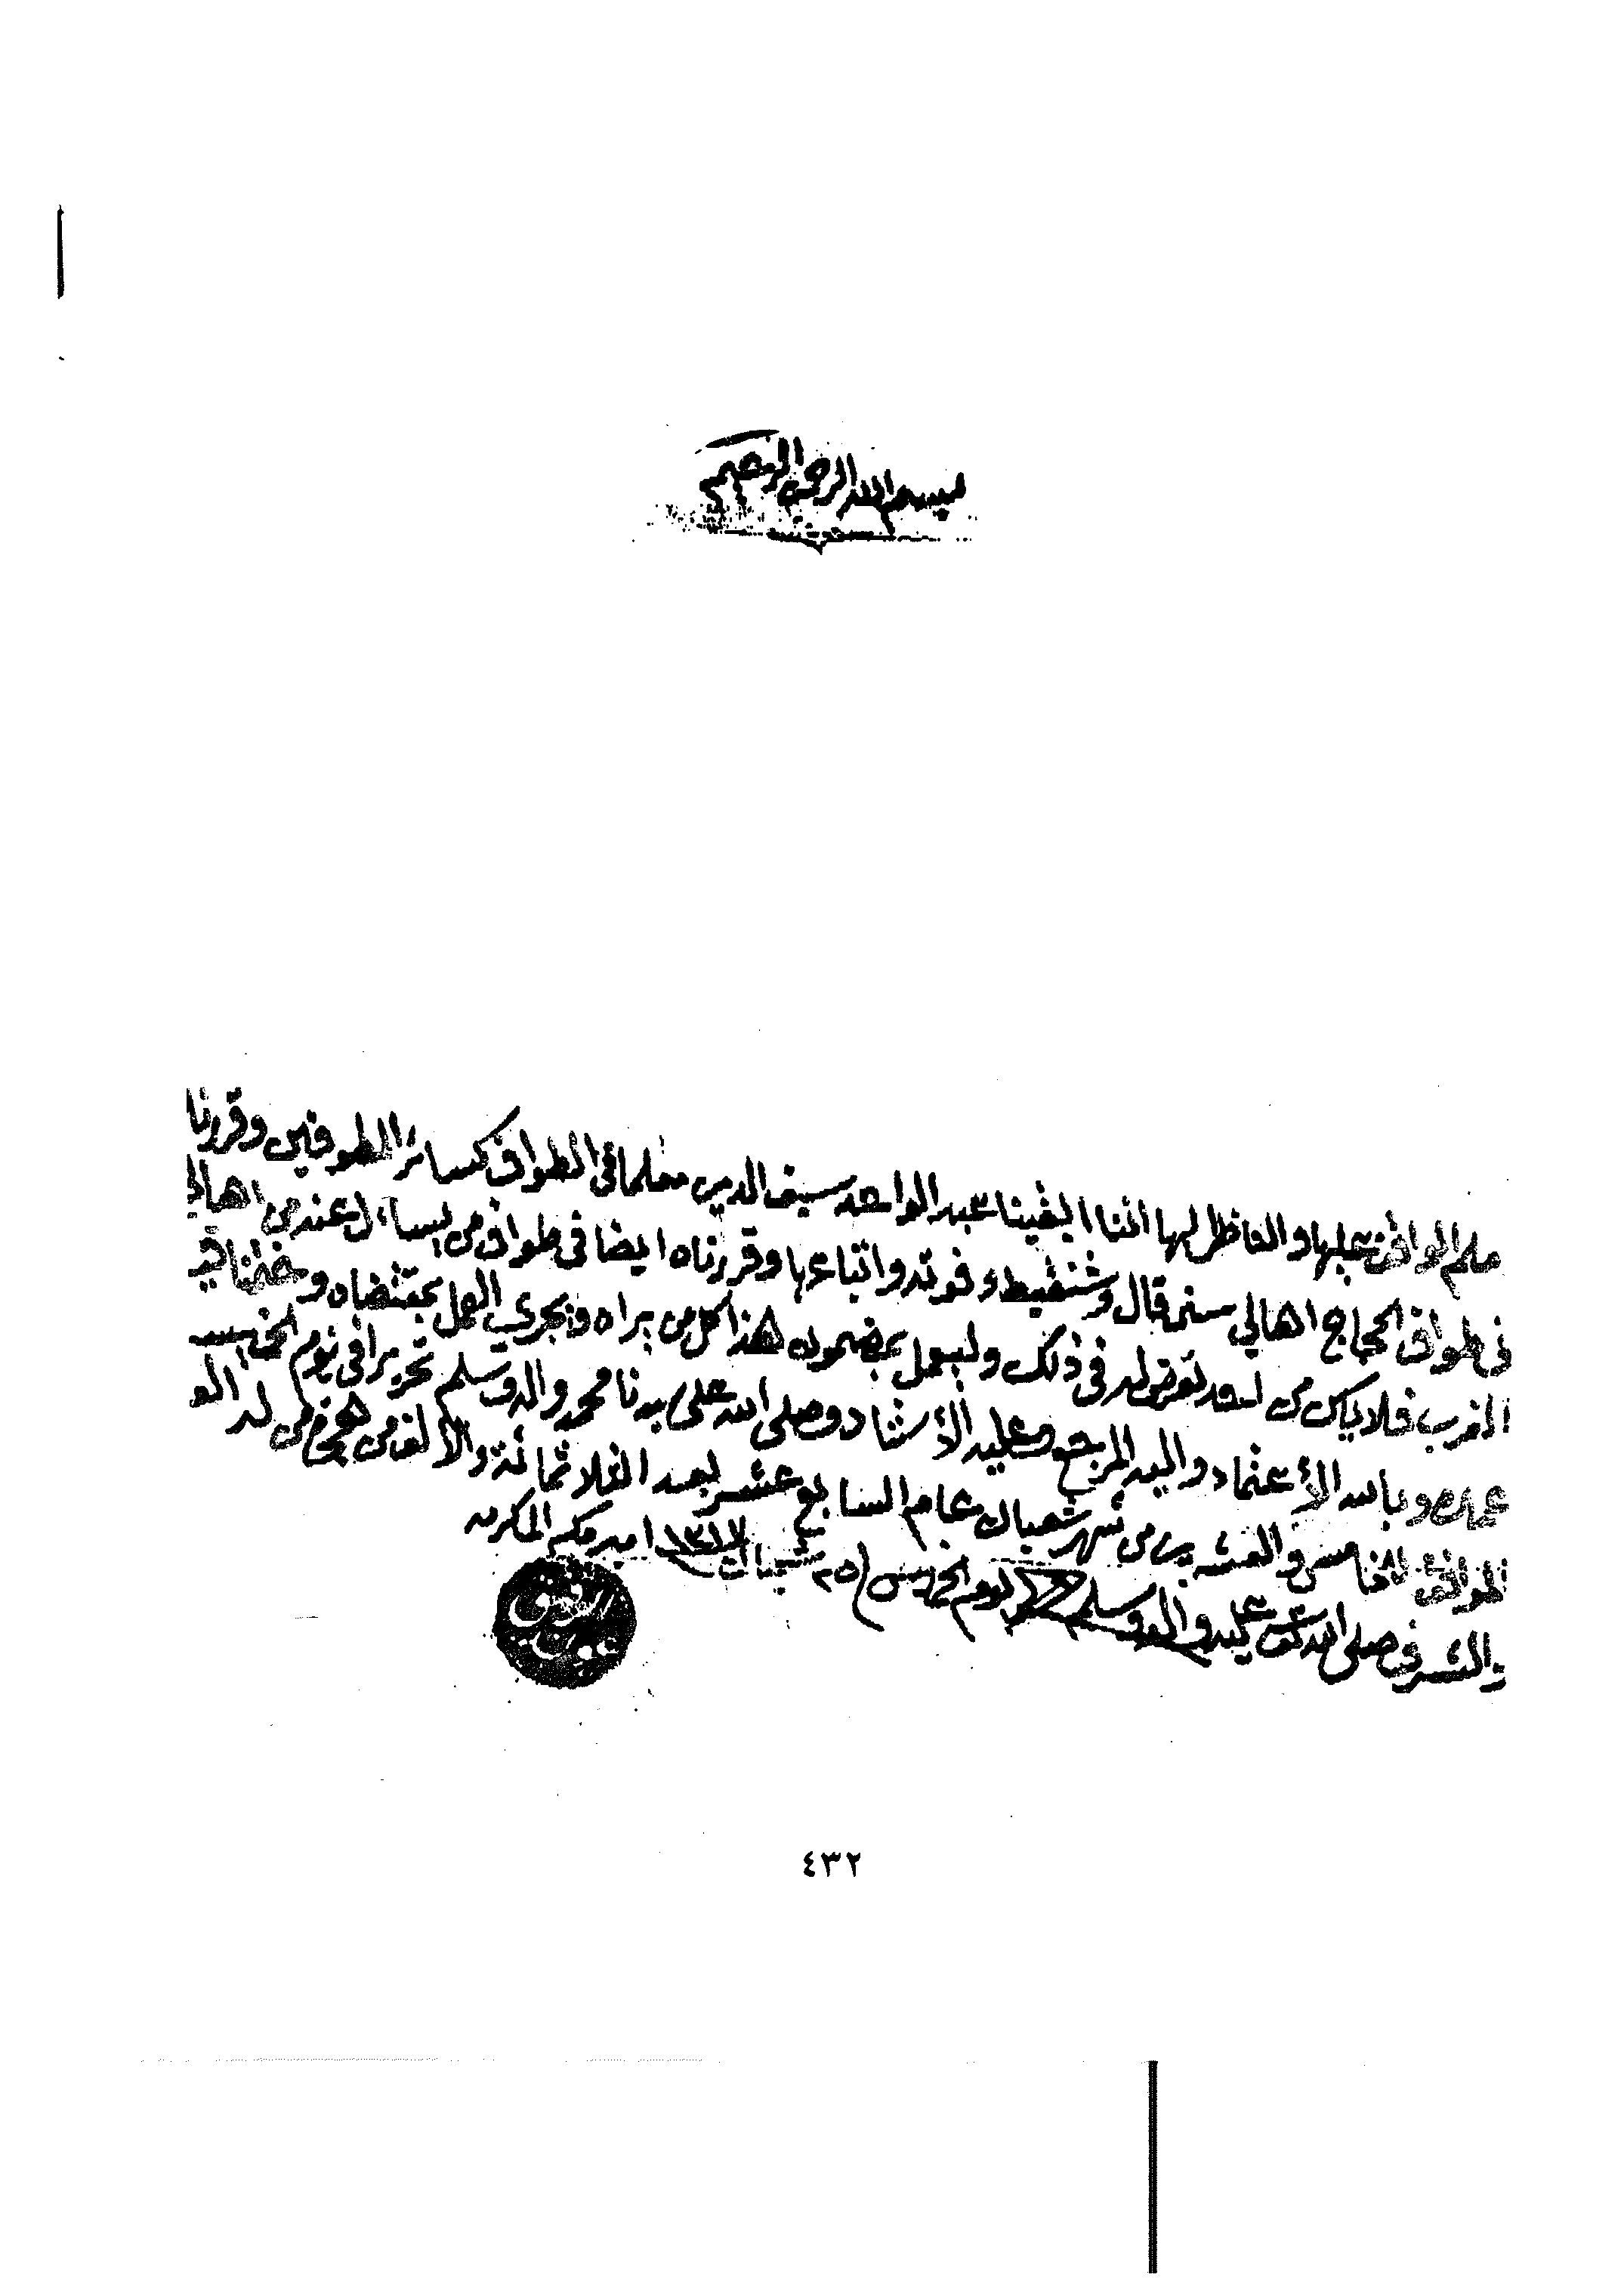 بسم الله الرحمن الرحيم
يعلم الواقف عليها والناظر لها اننا ابقينا عبد الواحد سيف الدين معلما في الطواف كسائر المطوفين وقررنا
في طواف الحجاج اهالي سنقال وشنقيط وفوته واتباعها وقررناه ايضا في طواف من يسأل عنه من اهالي
المغرب فلا يكن من احد تعرض له في ذلك وليعمل بمضمونه هذا كل من يراه ويجري العمل بمقتضاه وختمنا في
عمله وبالله الأعتماد واليه المرجع وعليه الأستناد وصلى الله على سيدنا محمد واله وسلم تحريرا في يوم الخميس
الموافق الخامس والعشرين من شهر شعبان عام السابع عشر بعد الثلاثمائة والألف من هجرة من له العز
والشرف صلى الله عليه واله وسلم يوم الخميس ٢٥ شعبان ١٣١٧ امير مكة المكرمه
٤٣٢